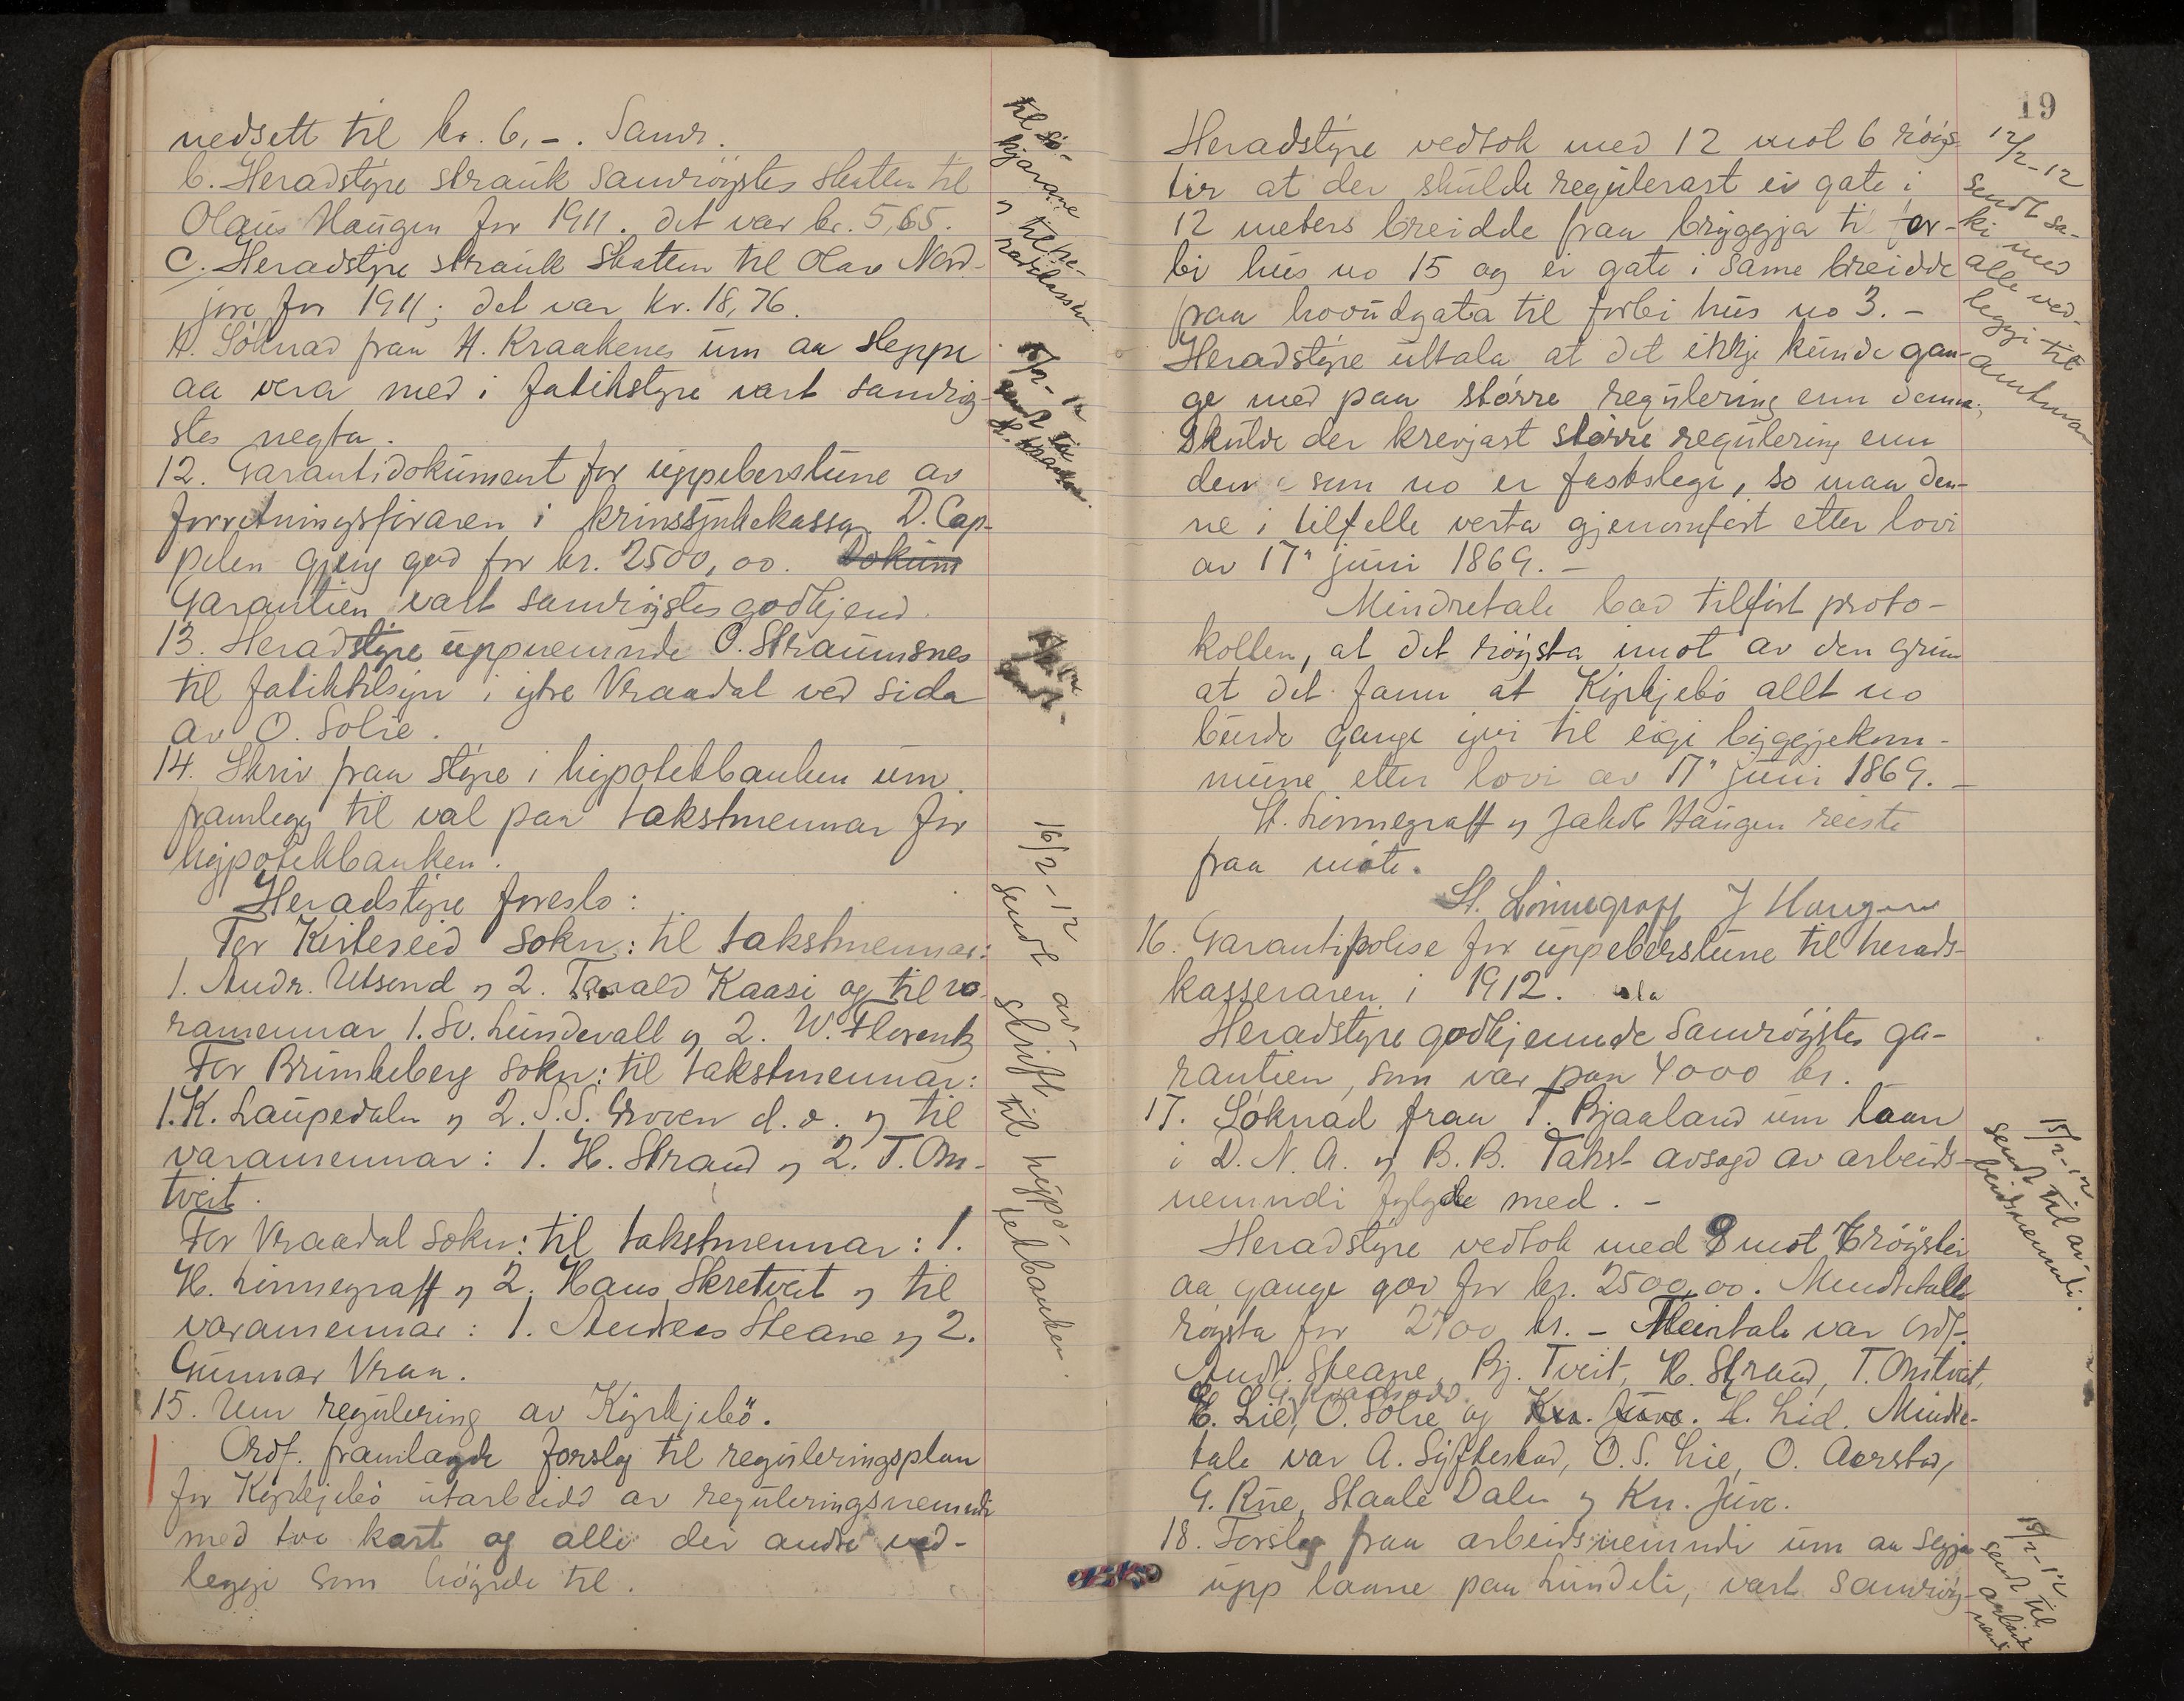 nedsett til kr. 6,-. Samr.
b. Heradstyre strauk samrøystes skatten til
Olaus Haugen for 1911. det var kr. 5,65.
C. Heradstyre strauk skatten til Olav Nord-
jore for 1911; det var kr. 18,76.
11. Søknad fraa H. Kraakenes um aa sleppe
aa vera med i fatikstyre vart samrøy-
stes negta.
12. Garantidokument for uppeberstune av
forretningsføraren i krinssjukekassa, D. Cap-
pelen gjeng god for kr. 2500,00. Dokum
Garantien vart samrøystes godkjend.
13. Heradstyre uppnemnde O. Straumsnes
til fatiktilsyn i ytre Vraadal ved sida
av O. Solie.
14. Skriv fraa styre i hypotekbanken um
framlegg til val paa takstmennar for
hypotekbanken.
Heradstyre foreslo:
For Kviteseid sokn: til takstmennar:
1. Andr. Utsond og 2. Tarald Kaasi og til va-
ramennar 1. Sv. Lundevall og 2. W. Florentz
For Brunkeberg sokn: til takstmennar:
1. K. Laupedalen og 2. S.S. Groven d.e. og til
varamennar: 1. H. Strand og 2. T. Om-
tveit.
For Vraadal sokn: til takstmennar: 1.
H. Linnegraff og 2. Hans Skretveit og til
varamennar: 1. Andreas Steane og 2.
Gunnar Vraa.
15. Um regulering av Kyrkjebø.
Ordf. framlagde forslag til reguleringsplan
for Kyrkjebø utarbeidd av reguleringsnemndi
med tvo kart og alle dei andre ved-
leggi som høyrde til.
til sø-
kjarane
og til he-
radskassar.
15/2-12
sendt til
H. Kraaken.
16/2-12 av-
skrift til hypo-
sendt tekbanken.
19
Heradstyre vedtok med 12 mot 6 røys-
tir at der skulde regulerast ei gate i
12 meters breidde fraa bryggja til for-
bi hus no 15 og ei gate i same breidde
fraa hovudgata til forbi hus no 3. -
Heradstyre uttala at det ikkje kunde gan-
ge med paa større regulering enn denne;
Skulde der krevjast større regulering enn
den som no er fastslege, so maa den-
ne i tilfelle verta gjenomført etter lovi
av 17" juni 1869. -
Mindretale bad tilført proto-
kollen, at det røysta imot av den grun
at det fann at Kyrkjebø allt no
burde gange yvi til eigi byggjekom-
mune etter lovi av 17" juni 1869. -
H. Linnegraff og Jakob Haugen reiste
fraa møte.
H. Linnegraff J Haugen
16. Garantipolise for uppeberstune til herads-
kasseraren i 1912.
Heradstyre godkjennde samrøystes ga-
rantien, som var paa 4000 kr. -
17. Søknad fraa T. Bjaaland um laan
i D. N. A. og B. B. Takst avsagd av arbeids-
nemndi fylgde med. -
Heradstyre vedtok med 8 mot 6 røyster
aa gange god for kr. 2500,00. Mindretalle
røysta for 2700 kr. - Fleirtale var ordf.
Andr. Steane, Bj. Tveit, H. Strand, T. Omtveit,
E. Lie, O. Solie og Kn. Juve. H. Lid. Mindre-
tale var A. Syftestad, O. S. Lie, O. Aarstad,
G. Rue, Staale Dalen og Kn. Juve.
18. Forslag fraa arbeidsnemndi um aa segja
upp laane paa Lundeli, vart samrøy-
12/2-12
sendt sa-
ki med
alle ved-
leggi til
amtman
15/2-12
sendt til ar-
beidsnemndi.
15/2-12
sendt til
arbeids
nemnd